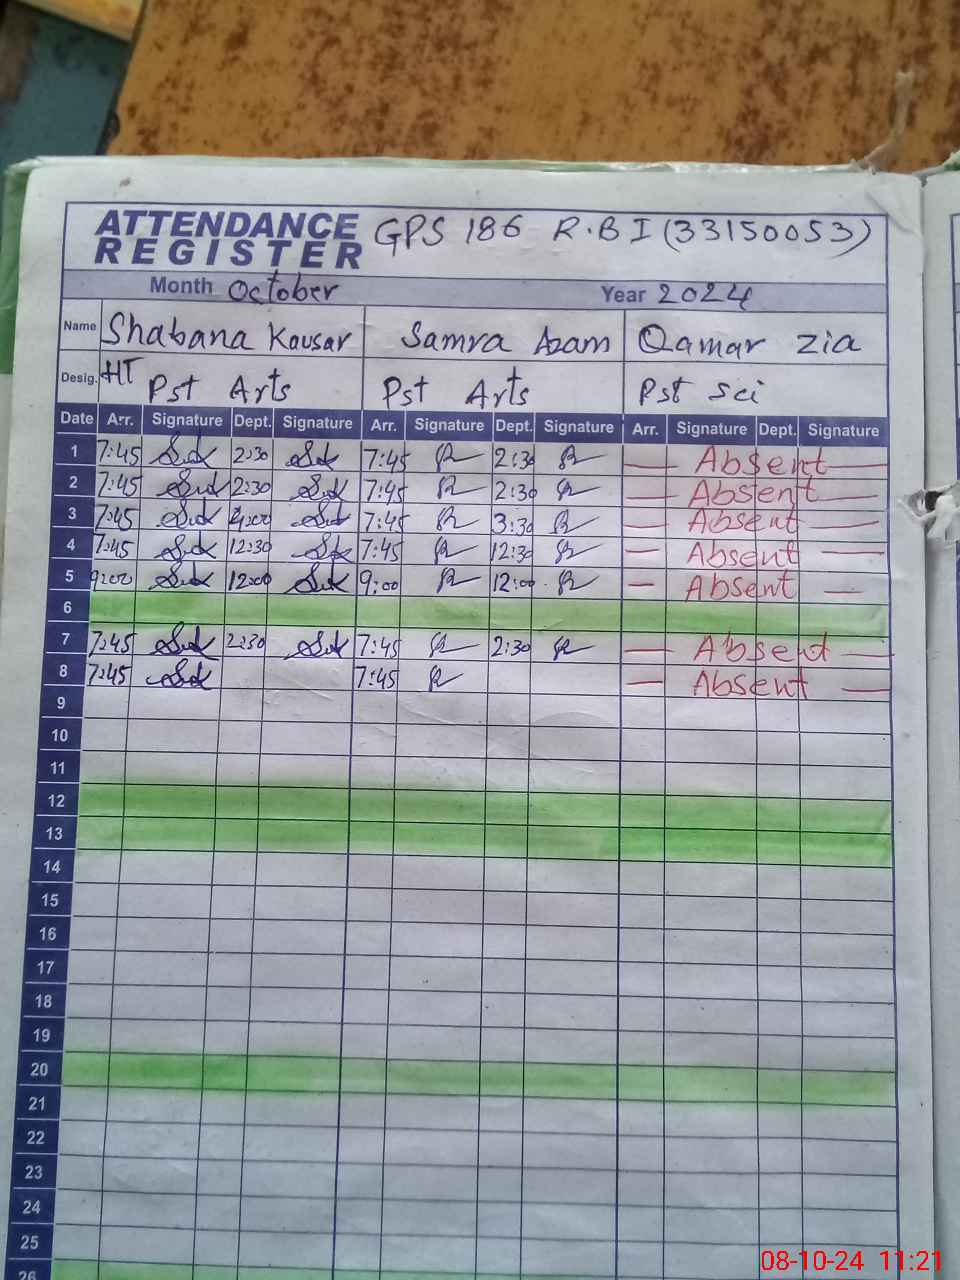 ATTENDANCE REGISTER GPS 186 R.B I (33150053)
Month October Year 2024
Name Shabana Kausar Samra Azam Qamar Zia
Desig. HT Pst Arts Pst Arts Pst Sci
Date Arr. Signature Dept. Signature Arr. Signature Dept. Signature Arr. Signature Dept. Signature
1 7:45 2:30 7:45 2:30 — Absent —
2 7:45 2:30 7:45 2:30 — Absent —
3 7:45 4:00 7:45 3:30 — Absent —
4 7:45 12:30 7:45 12:30 — Absent —
5 9:00 12:00 9:00 12:00 — Absent —
6
7 7:45 2:30 7:45 2:30 — Absent —
8 7:45 7:45 — Absent —
9
10
11
12
13
14
15
16
17
18
19
20
21
22
23
24
25
26
08-10-24 11:21